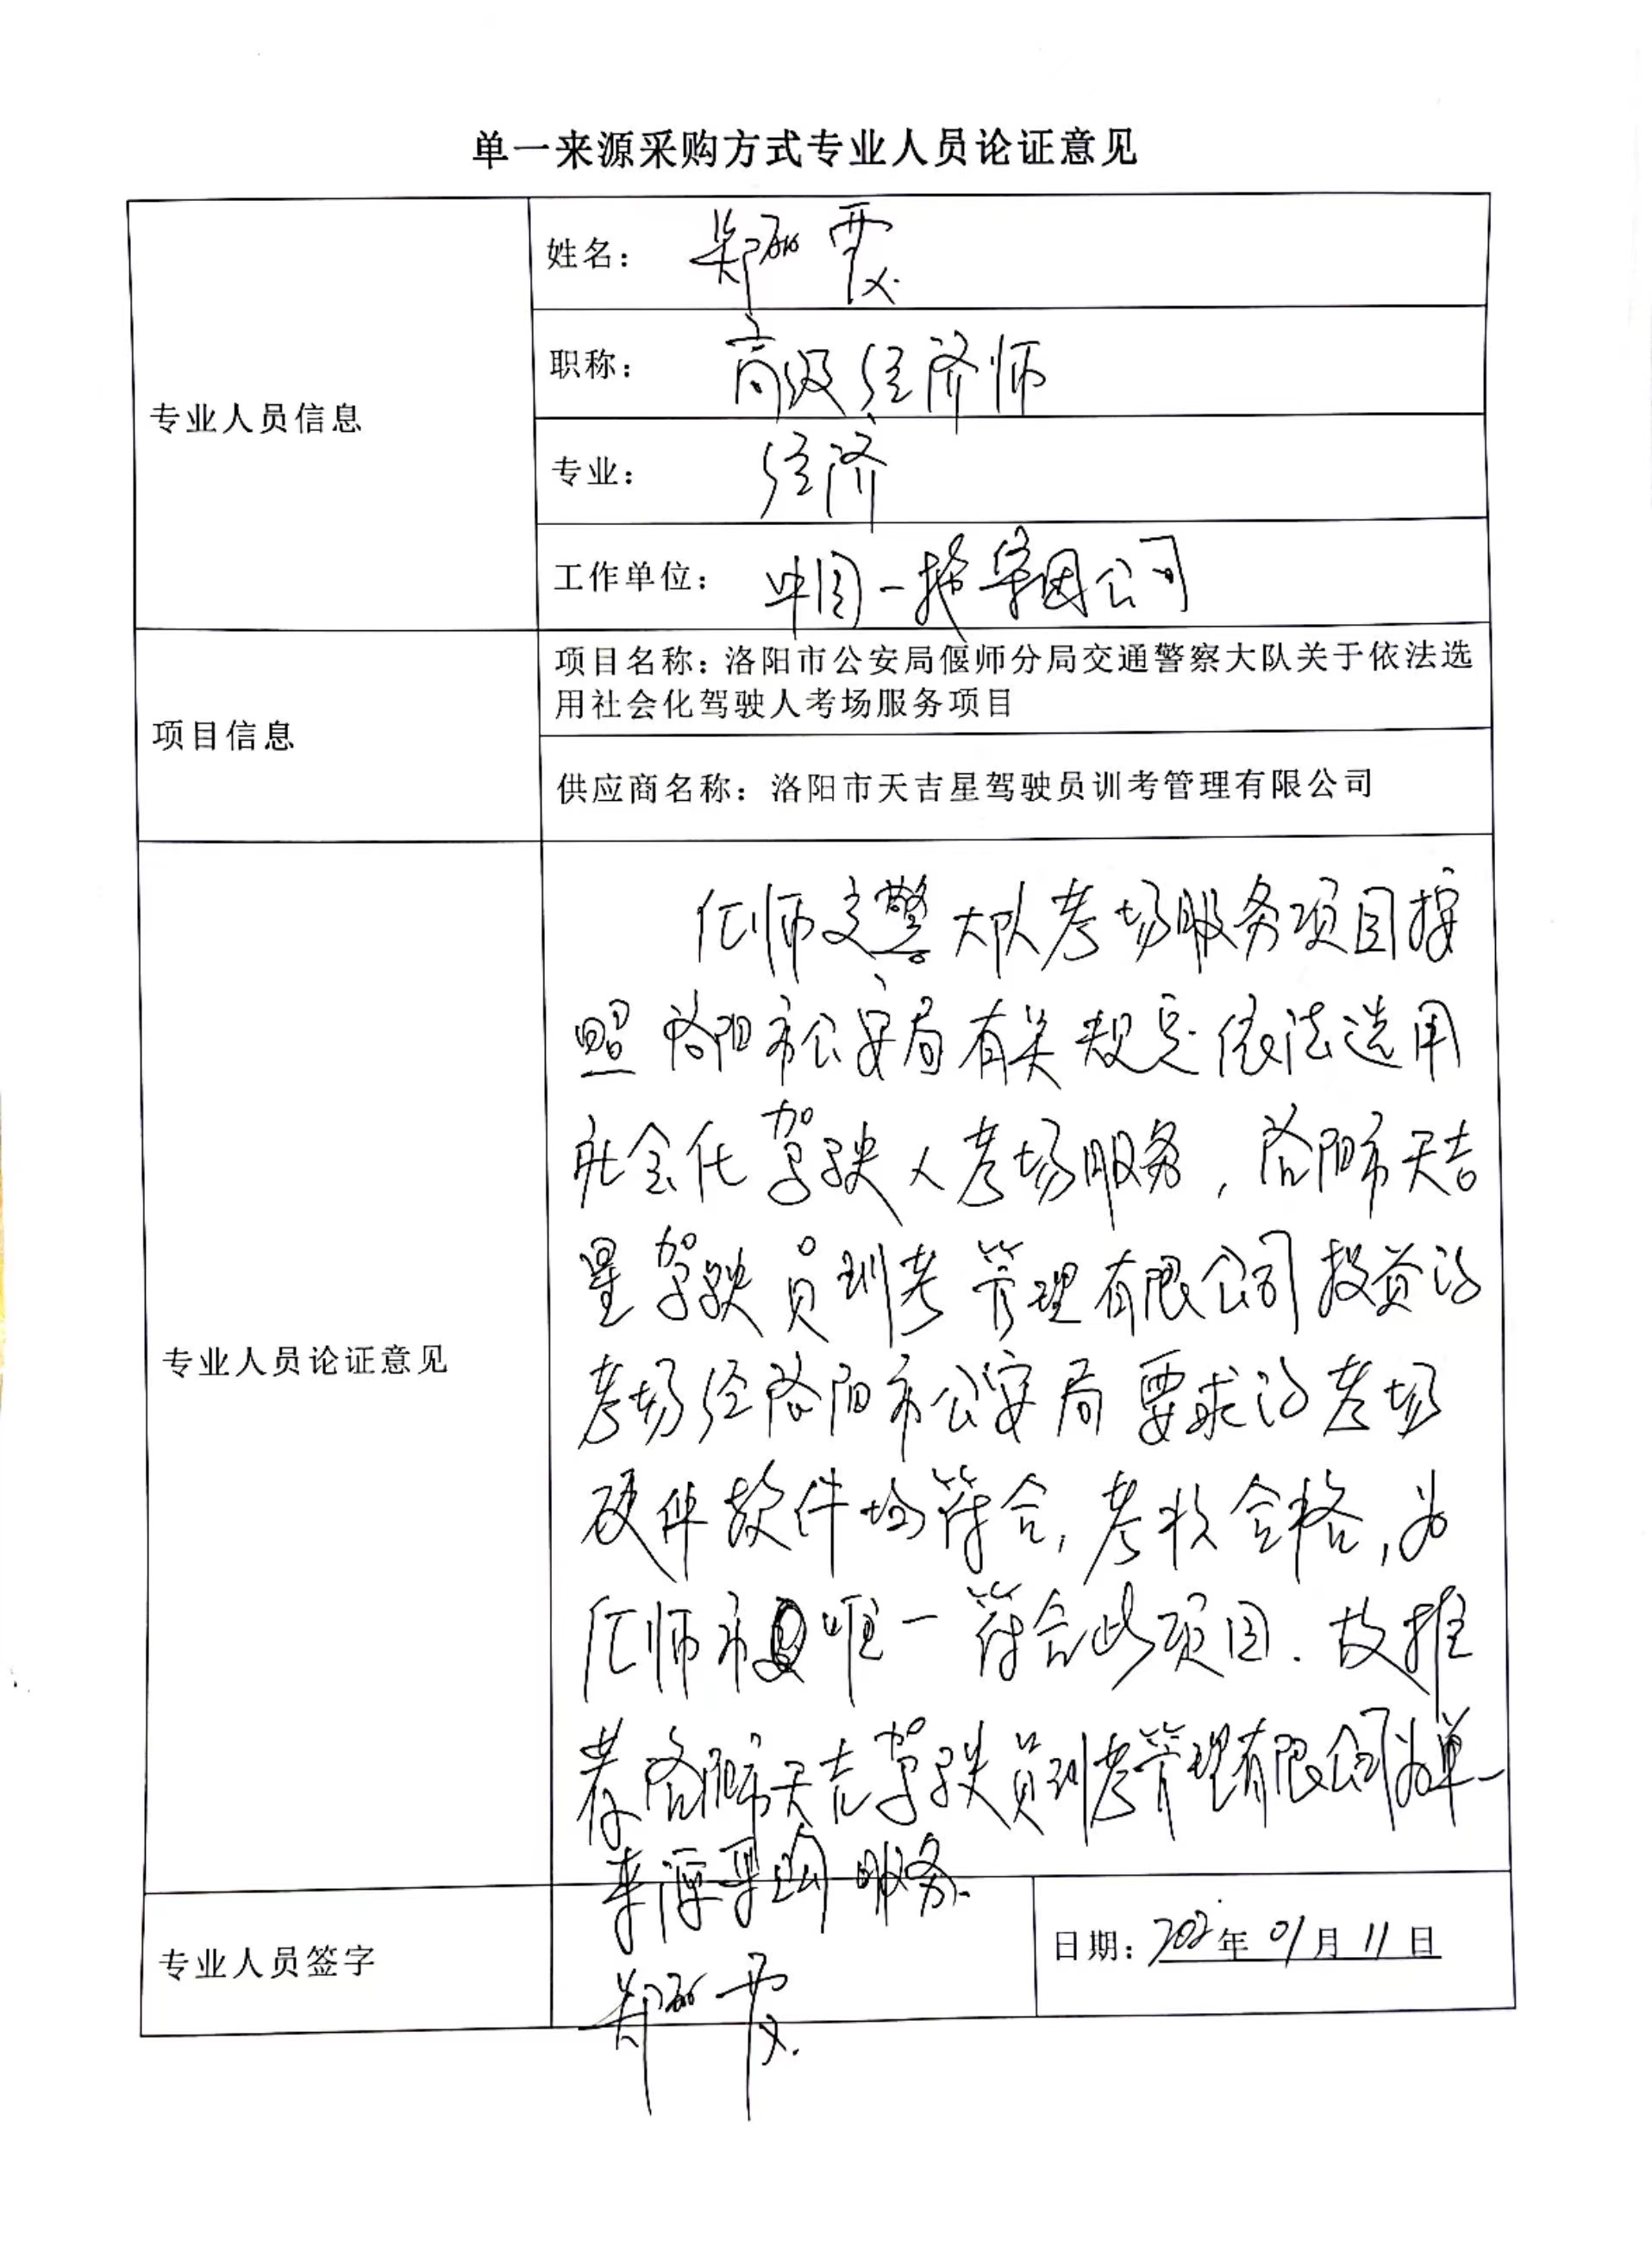 单一来源采购方式专业人员论证意见
专业人员信息
姓名： 郑 霞
职称： 高级经济师
专业： 经济
工作单位： 中国一拖集团公司
项目信息
项目名称：洛阳市公安局偃师分局交通警察大队关于依法选
用社会化驾驶人考场服务项目
供应商名称：洛阳市天吉星驾驶员训考管理有限公司
专业人员论证意见
偃师交警大队考场服务项目按
照洛阳市公安局有关规定依法选用
社会化驾驶人考场服务，洛阳市天吉
星驾驶员训考管理有限公司投资的
考场经洛阳市公安局要求的考场
硬件软件均符合，考核合格，为
偃师市唯一符合此项目．故推
荐洛阳市天吉驾驶员训考管理有限公司为单一
来源采购服务．
专业人员签字
郑 霞
日期： 年01月11日